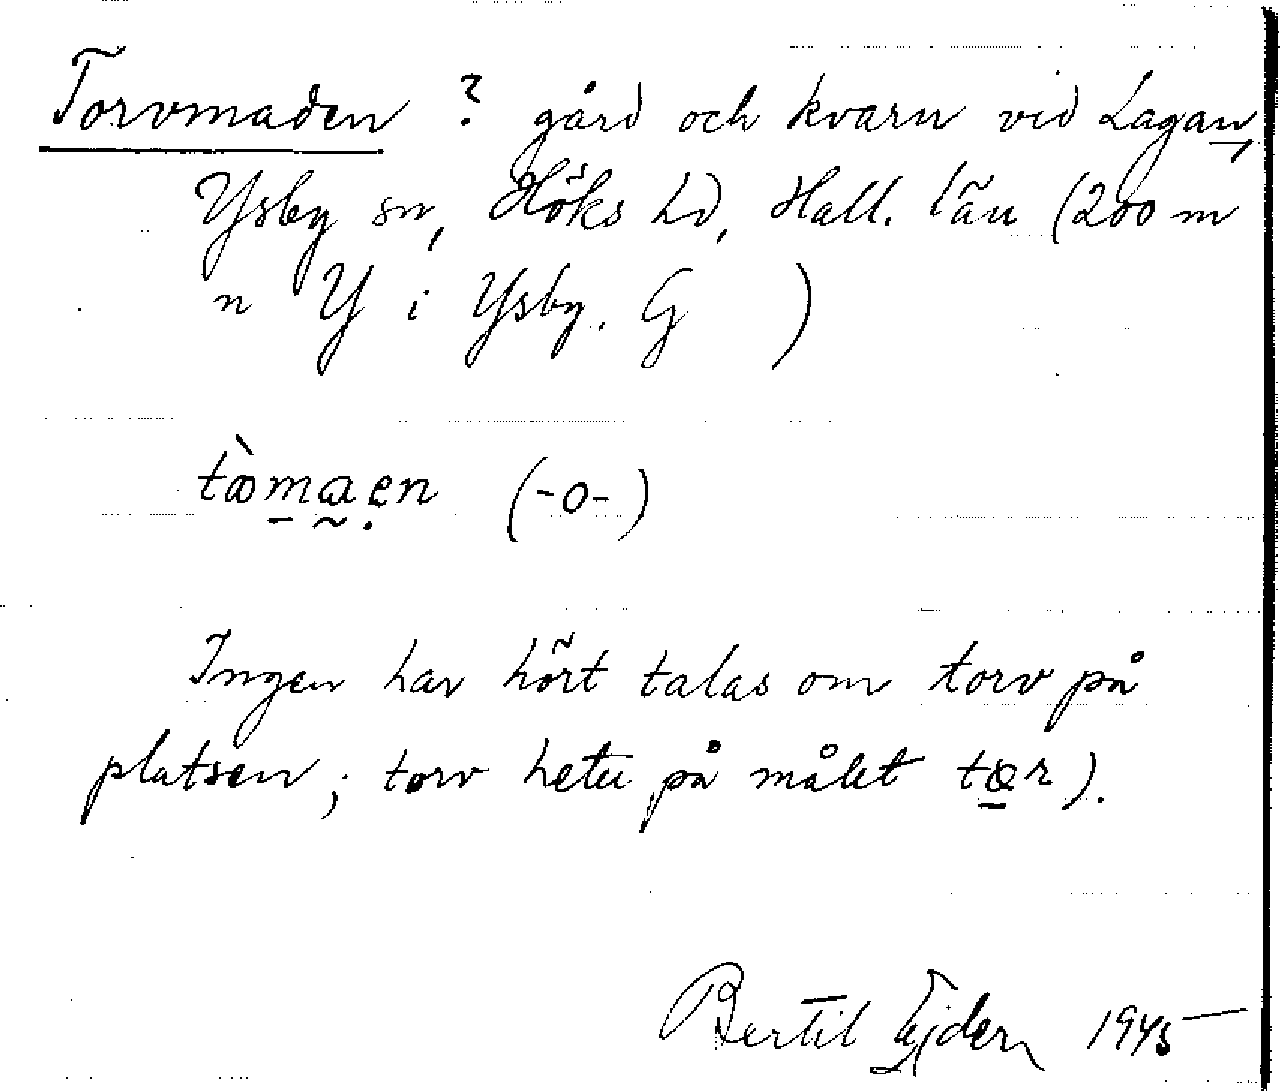 Torvmaden ? gård och kvarn vid Lagan,
Ysby sn, Höks hd, Hall. län (200 m
n Y i Ysby. G )
tòmaen (-o-)
Ingen har hört talas om torv på
platsen; torv heter på målet tær).
Bertil Ejder 1945